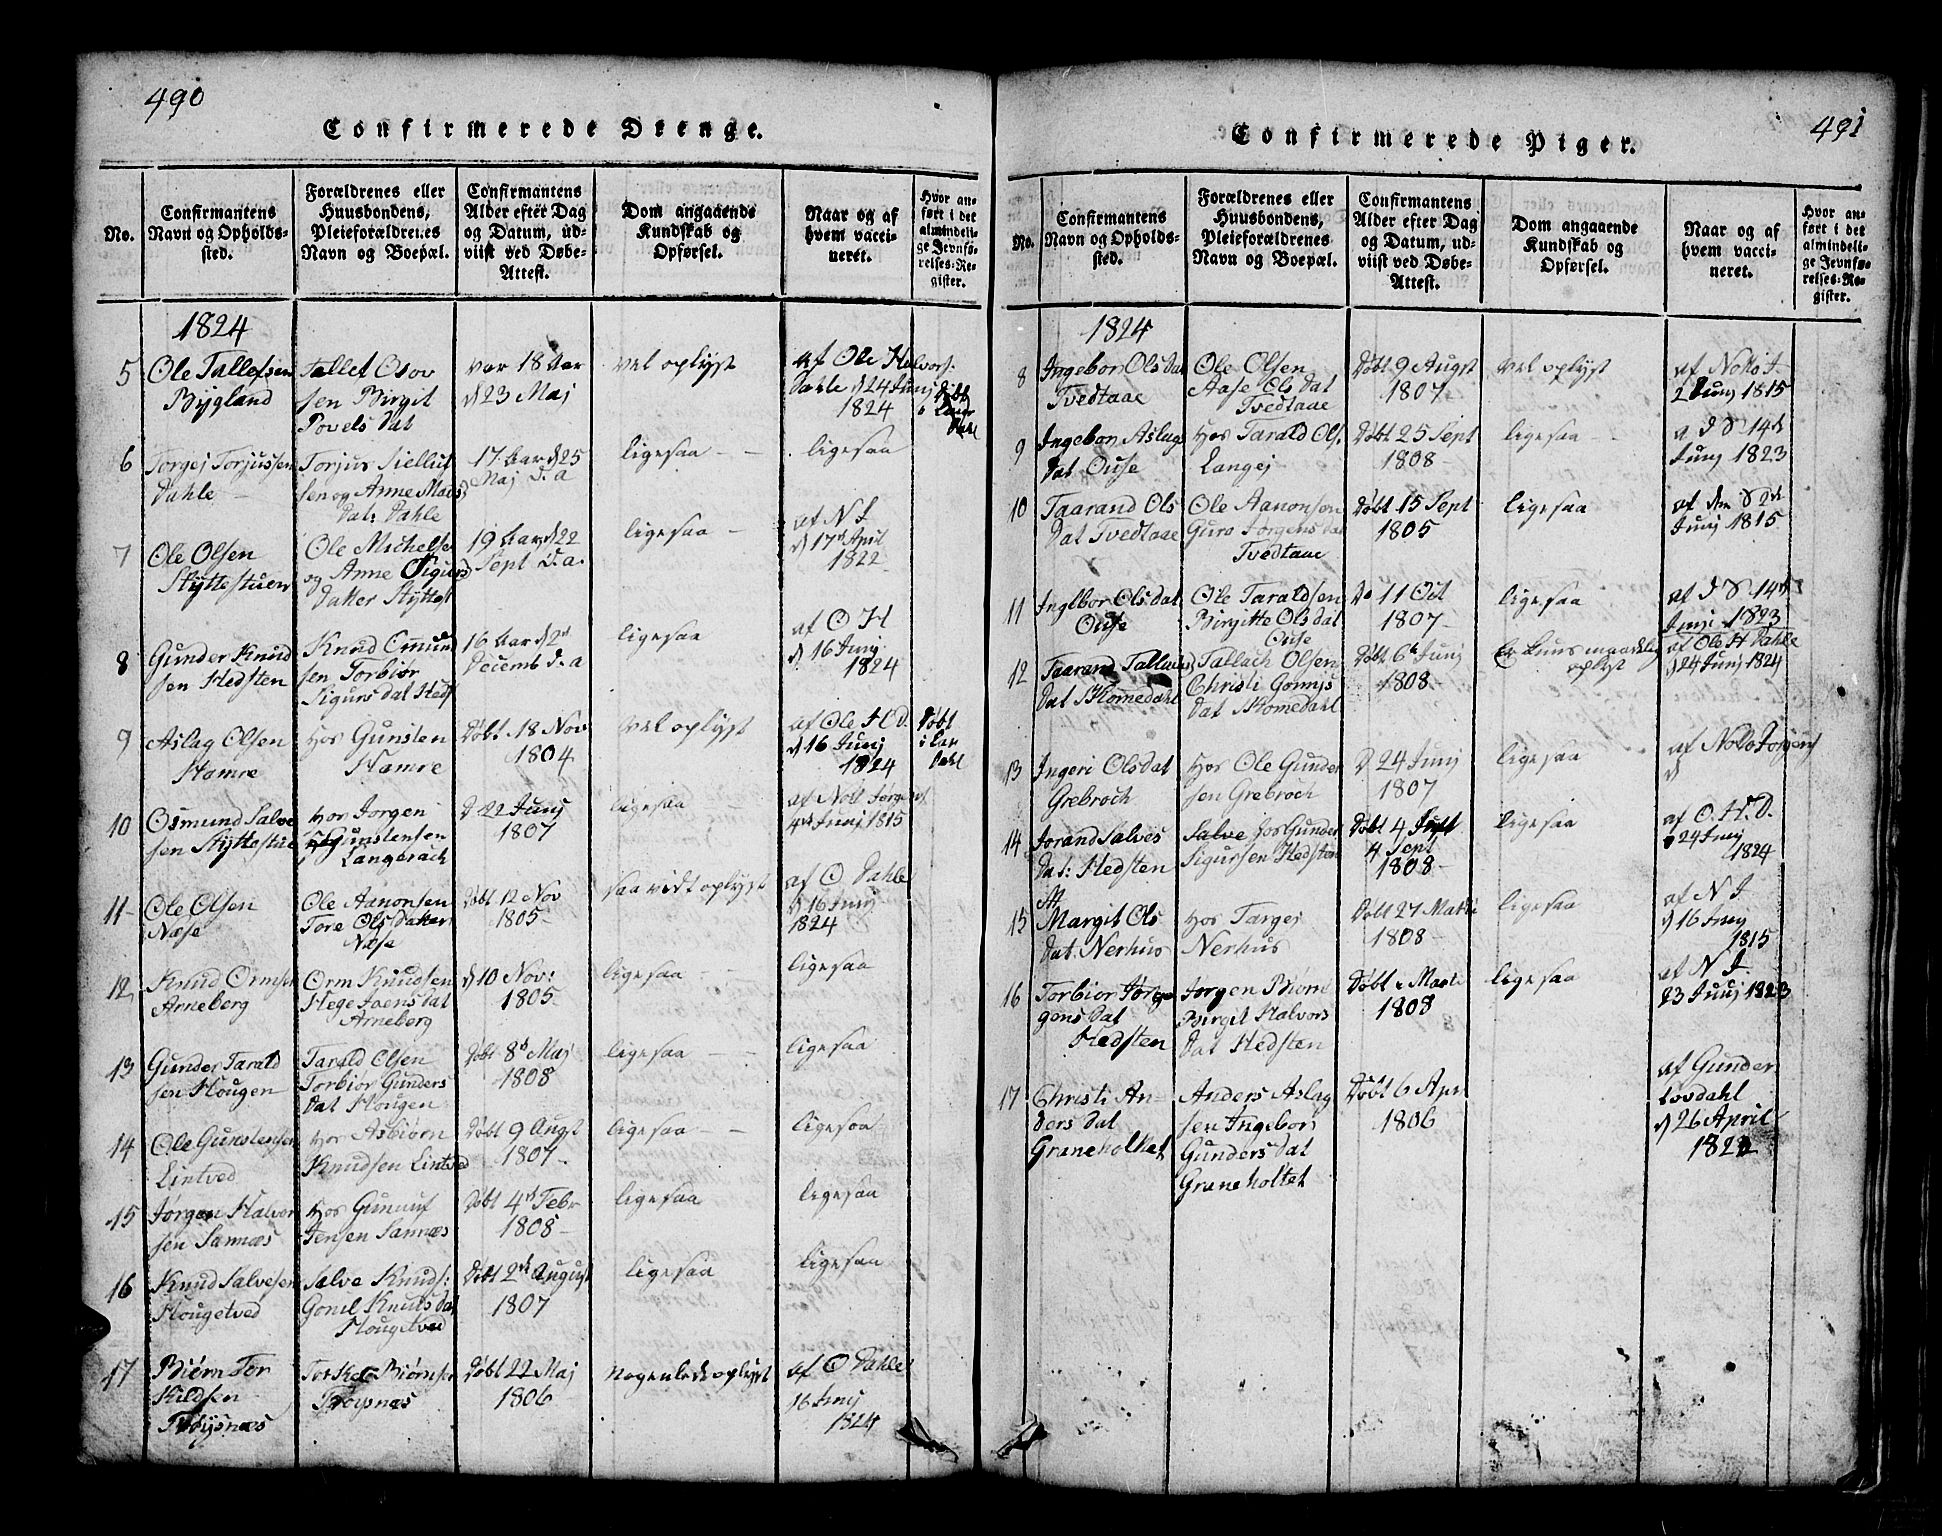 490
Confirmerede Drenge.
No.
Confirmantens
Navn og Opholds-
sted.
Forældrenes eller
Huusbondens,
Pleieforældrenes
Navn og Boepæl.
Confirmantens
Alder efter Dag
og Datum, ud-
viist ved Døbe-
Attest.
Dom angaaende
Kundskab og
Opførsel.
Naar og af
hvem vacci-
neret.
Hvor an-
ført i det
almindeli-
ge Jevnfø-
relses-Re-
gister.
1824
5
Ole Tallefsen
Bygland
Tallef Osov
sen Birgit
Povels Dat
var 18 Aar
d 23 Maj
vel oplyst
af Ole Halvors.
Dahle d 24 Junj
1824
Døbt
i Laur
Dahl
6
Torgej Torjussen
Dahle
Torjus
sen og Anne
Dat: Dahle
17 Aar d 25
Maj d. a
ligesaa
ligesaa
7
Ole Olsen
Skyttestuen
Ole Michelsen
og Anne Sigurds
Datter Skyttest
19 Aar d 22
Sept d. a.
ligesaa
af N J
d 17de April
1822
8
Gunder Knud
sen Hedsten
Knud Omund
sen Torbiør
Sigurs dat Heds
16 Aar d 2de
Decemb d. a
ligesaa
af O H
d 16 Junj
1824
9
Aslag Olsen
Hamre
Hos Gunsten
Hamre
Døbt 18 Nov
1804
vel oplyst
af Ole H D.
d 16 Junj
1824
Døbt
i Lar
Dahl
10
Osmund Salve
sen Skyttestue
Hos Jorgen
Gunstensen
Langerach
D 22 Junj
1807
ligesaa
af Noll Jørgens
4de Junj 1815
11
Ole Olsen
Næse
Ole Aanonsen
Tore Ols Datter
Næse
Døbt 12 Nov
1805
saa vidt oplyst
af O Dahle
d 16 Junj
1824
12
Knud Ormsen
Arneberg
Orm Knudsen
Hege Joens dat
Arneberg
d 10 Nov:
1805
ligesaa
ligesaa
13
Gunder Tarald
sen Hougen
Tarald Olsen
Torbiør Gunders
Dat Hougen
Døbt 8de Maj
1808
ligesaa
ligesaa
14
Ole Gunstensen
Lintved
Hos Asbiørn
Knudsen Lintved
Døbt 9 Augst
1807
ligesaa
ligesaa
15
Jørgen Halvor
sen Sannæs
Hos Gunuuf
Jensen Sannæs
Døbt 4de Febr
1808
ligesaa
ligesaa
16
Knud Salvesen
Hougetved
Salve Knuds:
Gonil Knuds dat
Hougetved
Døbt 2de August
1807
ligesaa
ligesaa
17
Biørn Tor
Kildsen
Frøysnæs
Torkel Biørnsen
Frøysnæs
Døbt 22 Maj
1806
Nogenlede oplyst
af O Dahle
16 Junj
1824
491
Confirmerede Piger.
No.
Confirmantens
Navn og Opholds-
sted.
Forældrenes eller
Huusbondens,
Pleieforældrenes
Navn og Boepæl.
Confirmantens
Alder efter Dag
og Datum, ud-
viist ved Døbe-
Attest.
Dom angaaende
Kundskab og
Opførsel.
Naar og af
hvem vacci-
neret.
Hvor an-
ført i det
almindeli-
ge Jevnfø-
relses-Re-
gister.
1824
8
Ingebor Olsdat
Tvedtaae
Ole Olsen
Aase Ols Dat
Tvedtaae
Døbt 9 Augst
1807
vel oplyst
af Nolls J.
2 Junj 1815
9
Ingebor Aslags
Dat Ouse
Hos Tarald Ols.
Langej
Døbt 25 Sept
1808
ligesaa
14de
Junj 1823
10
Taarand Ols
Dat Tvedtaae
Ole Aanonsen
Guro Jorgens dat
Tvedtaae
Døbt 15 Sept
1805
ligesaa
af den S 2de
Junj 1815
11
Ingebor Olsdat
Ouse
Ole Taraldsen
Birgitte Ols dat
Ouse
Do 11 Oct
1807
ligesaa
af d S 14de
Junj 1823
12
Taarand Tallachs
Dat Homedahl
Tallach Olsen
Christi Gonnjs
Dat Homedahl
Døbt 6te Junj
1808
Er kuns maadelig
oplyst
af Ole H Dahle
d 24 Junj 1824
13
Ingeri Olsdat
Grebroch
Hos Ole Gunder
sen Grebroch
D 24 Junj
1807
ligesaa
af Nolo Jorgens
d
14
Jorand Salves
Dat: Hedsten
Salve Hos Gunder
Sigursen Hedsten
Døbt 4
4 Sept
1808
ligesaa
af O. H. D.
24 Junj
1824
15
Margit Ols
Dat Nerhus
Hos Targej
Nerhus
Døbt 27 Marti
1808
ligesaa
af N J
d 16 Junj
1815
16
Torbior Jørgen
gens Dat
Hedsten
Jørgen Biørn
Birgit Halvors
Dat Hedsten
Døbt Marti
1808
ligesaa
af N J.
23 Junj 1823
17
Christi An-
ders dat
Graneholtet
Anders Aslag
sen Ingebor
Gunders dat
Graneholtet
Døbt 6 Apr
1806
af Gunder
Lovdahl
d 26 April